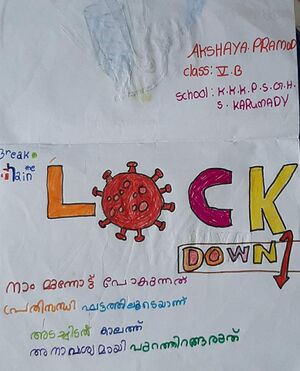 AKSHAYA.PRAMOD
class: V.B
school: K.K.K.P.S.G.H.
S. KARUMADY
Break
LOCK
DOWN
നാം മുന്നോട്ട് പോകുന്നത്
പ്രതിസന്ധി ഘട്ടത്തിലൂടെയാണ്
അടച്ചിടൽ കാലത്ത്
അനാവശ്യമായി പുറത്തിറങ്ങരുത്